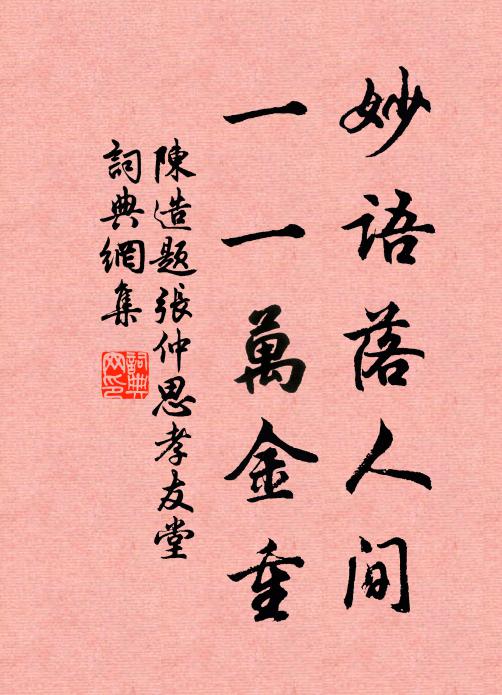 妙語落人间
一一萬金重
陳造題張仲思孝友堂
詞典網集
詞典网印